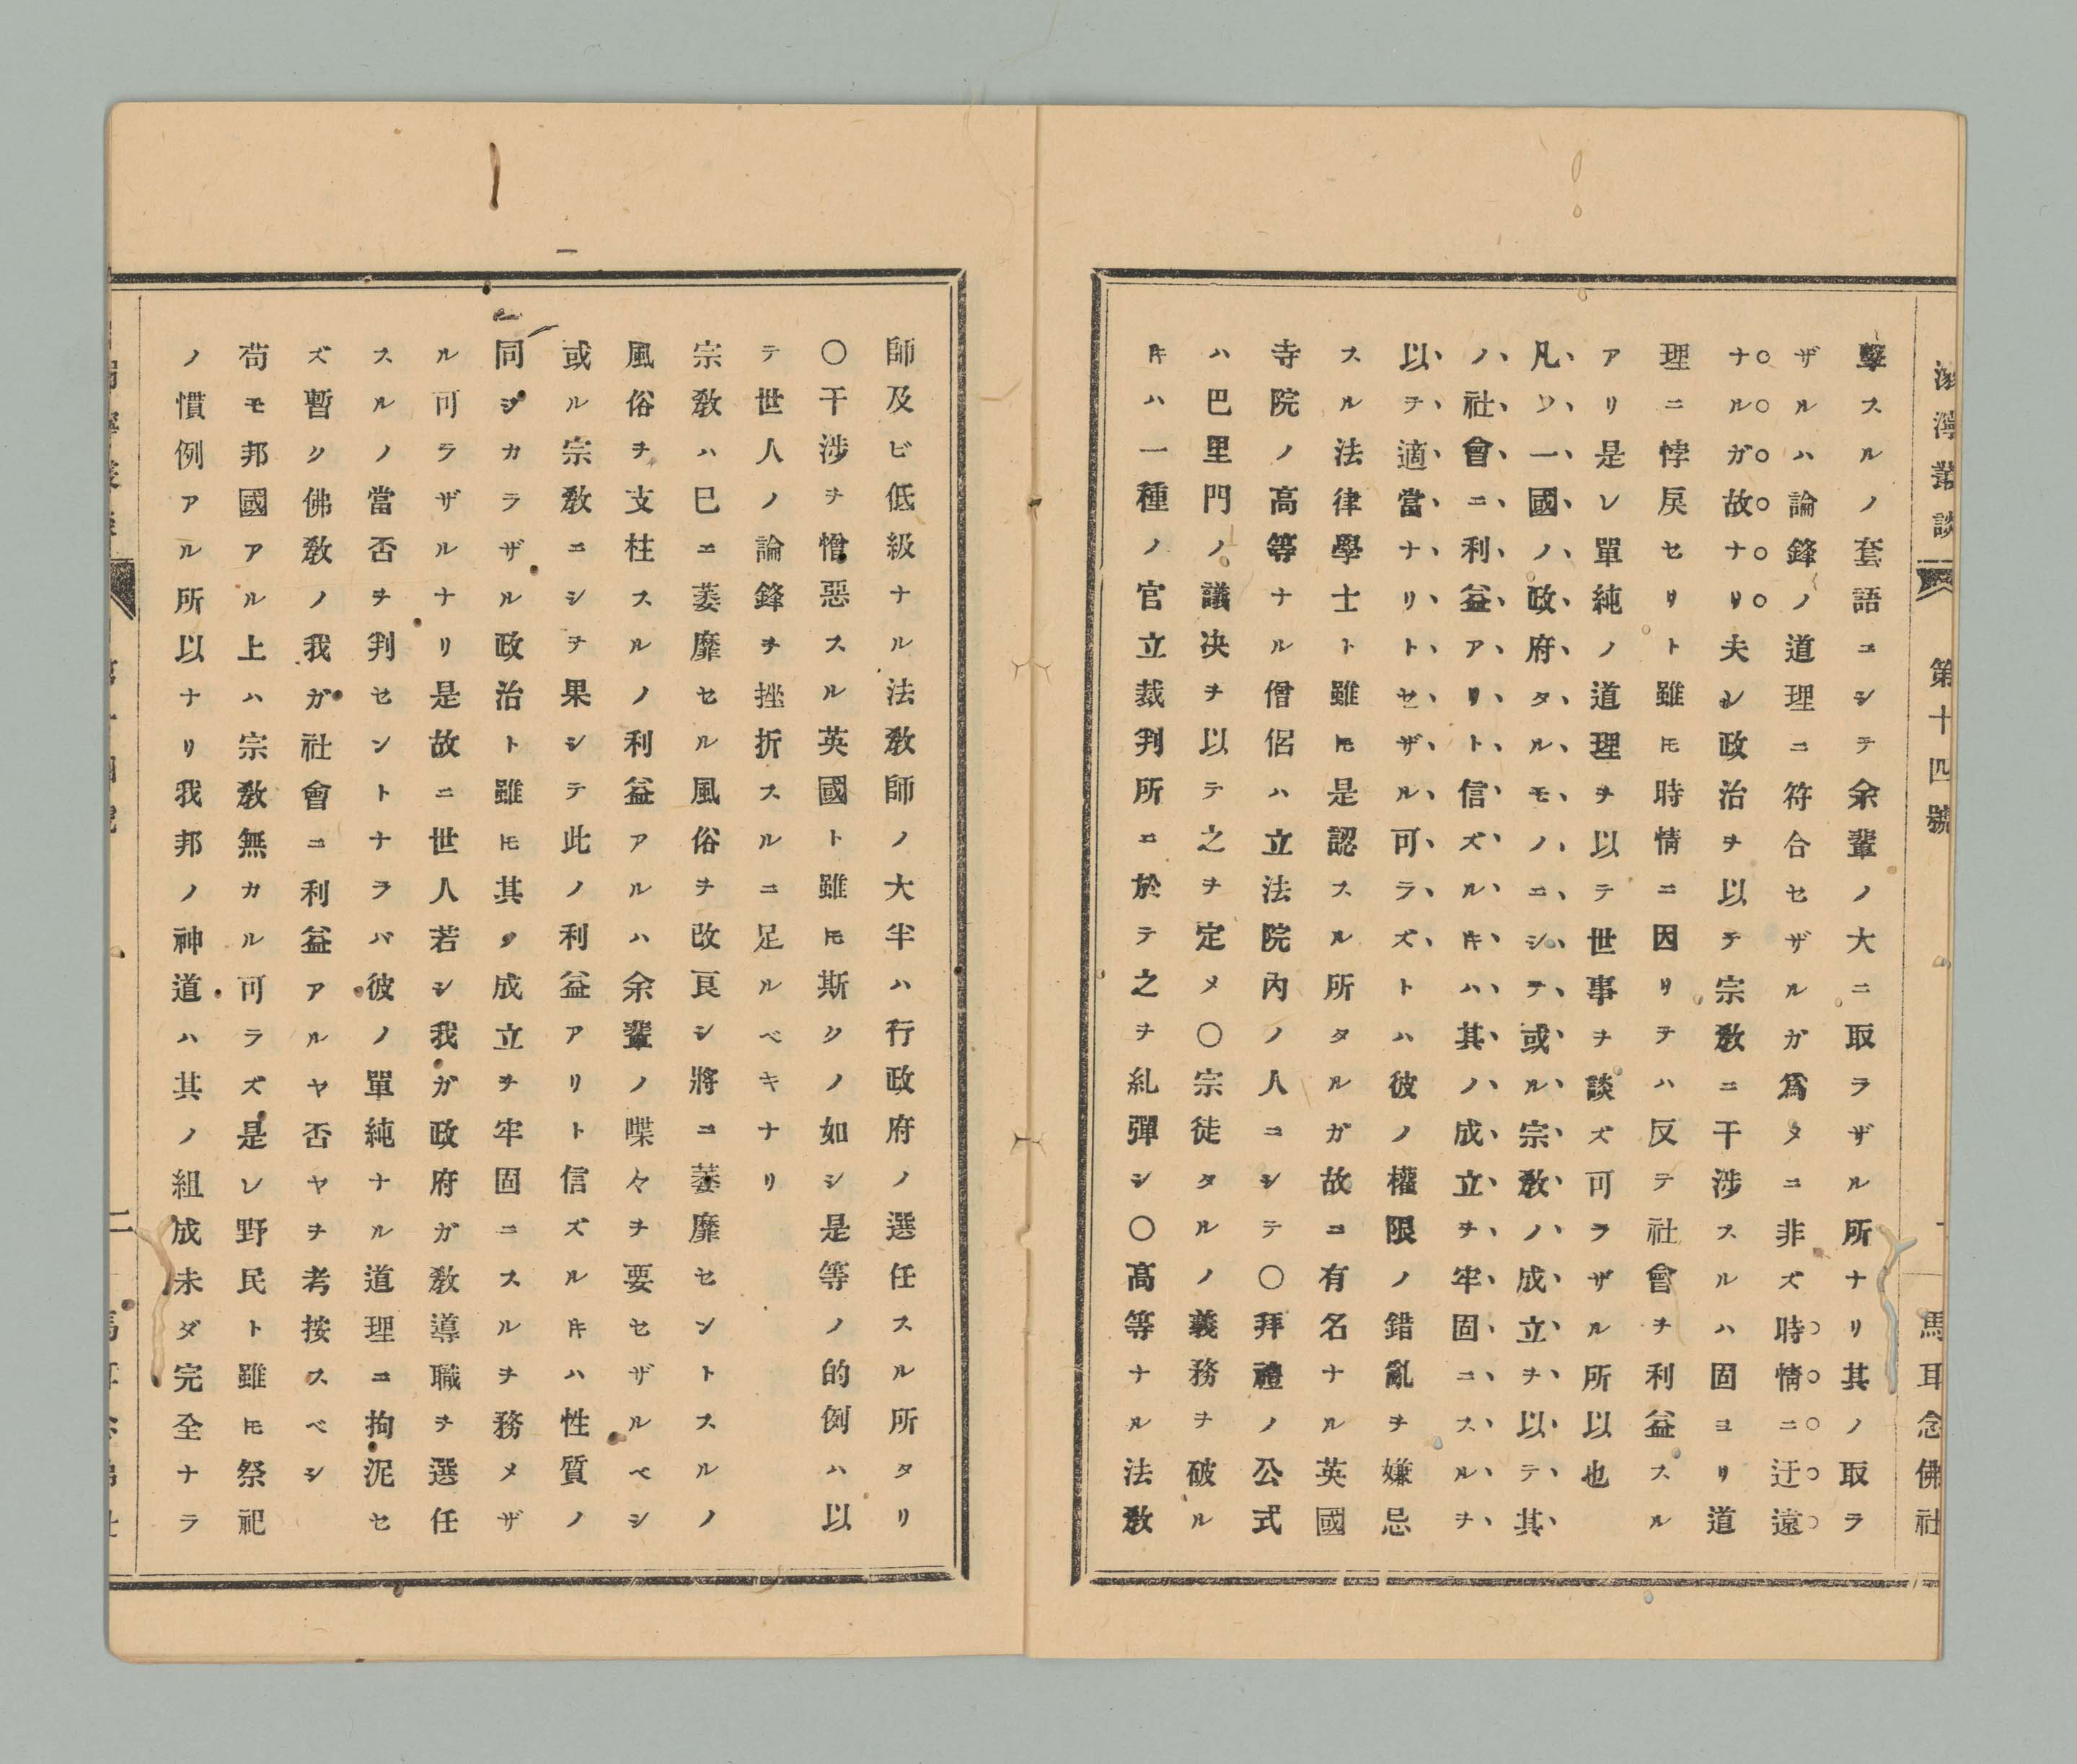 叢談　第十四號　一　馬耳念佛社
擊スルノ套語ニシテ余輩ノ大ニ取ラザル所ナリ其ノ取ラ
ザルハ論鋒ノ道理ニ符合セザルガ爲タニ非ズ時情ニ迂遠
ナルガ故ナリ夫レ政治ヲ以テ宗敎ニ干涉スルハ固ヨリ道
理ニ悖戾セリト雖𪜈時情ニ因リテハ反テ社會ヲ利益スル
アリ是レ單純ノ道理ヲ以テ世事ヲ談ズ可ラザル所以也
凡ソ一國ノ政府タルモノニシテ或ル宗敎ノ成立ヲ以テ其
ノ社會ニ利益アリト信ズルキハ其ノ成立ヲ牢固ニスルヲ
以テ適當ナリトセザル可ラズトハ彼ノ權限ノ錯亂ヲ嫌忌
スル法律學士ト雖𪜈是認スル所タルガ故ニ有名ナル英國
寺院ノ高等ナル僧侶ハ立法院內ノ人ニシテ〇拜禮ノ公式
ハ巴里門ノ議決ヲ以テ之ヲ定メ〇宗徒タルノ義務ヲ破ル
キハ一種ノ官立裁判所ニ於テ之ヲ糺彈シ〇高等ナル法敎
師及ビ低級ナル法敎師ノ大半ハ行政府ノ選任スル所タリ
〇干涉ヲ憎惡スル英國ト雖𪜈斯クノ如シ是等ノ的例ハ以
テ世人ノ論鋒ヲ挫折スルニ足ルベキナリ
宗敎ハ巳ニ萎靡セル風俗ヲ改良シ將ニ萎靡セントスルノ
風俗ヲ支柱スルノ利益アルハ余輩ノ喋々ヲ要セザルベシ
或ル宗敎ニシヲ果シテ此ノ利益アリト信ズルキハ性質ノ
同ジカラザル政治ト雖𪜈其ノ成立ヲ牢固ニスルヲ務メザ
ル可ラザルナリ是故ニ世人若シ我ガ政府ガ敎導職ヲ選任
スルノ當否ヲ判セントナラバ彼ノ單純ナル道理ニ拘泥セ
ズ暫ク佛敎ノ我ガ社會ニ利益アルヤ否ヤヲ考按スベシ
苟モ邦國アル上ハ宗敎無カル可ラズ是レ野民ト雖𪜈祭祀
ノ慣例アル所以ナリ我邦ノ神道ハ其ノ組成未ダ完全ナラ